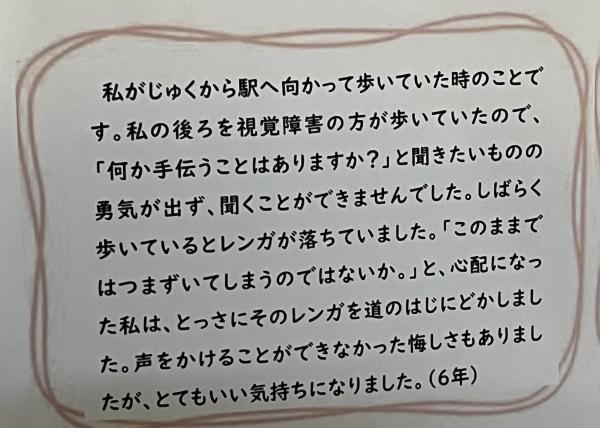 私がじゅくから駅へ向かって歩いていた時のことで
す。私の後ろを視覚障害の方が歩いていたので、
「何か手伝うことはありますか?」と聞きたいものの
勇気が出ず、聞くことができませんでした。しばらく
歩いているとレンガが落ちていました。「このままで
はつまずいてしまうのではないか。」と、心配になっ
た私は、とっさにそのレンガを道のはじにどかしまし
た。声をかけることができなかった悔しさもありまし
たが、とてもいい気持ちになりました。(6年)